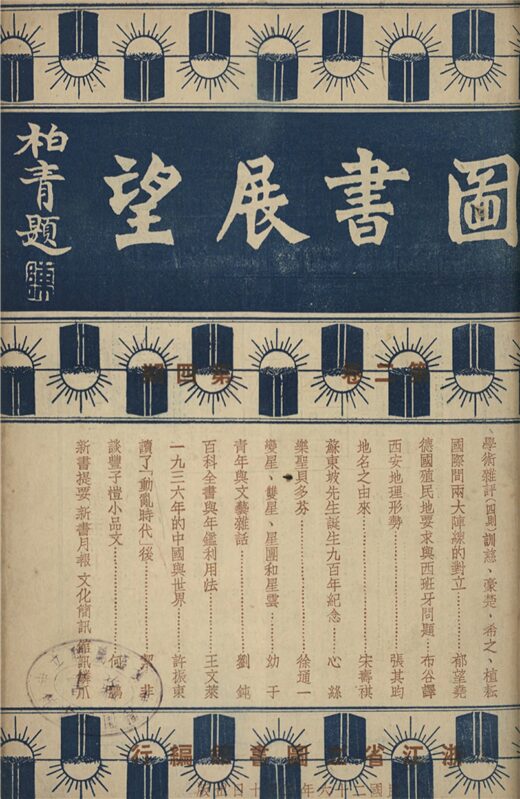 圖書展望
柏青題
第二卷 第四期
學術雜評(四則)訓慈、豪楚、希之、植耘
國際間兩大陣線的對立………郁望堯
德國殖民地要求與西班牙問題…布谷譯
西安地理形勢………張其昀
地名之由來………宋壽祺
蘇東坡先生誕生九百年紀念……心絲
樂聖貝多芬………徐通一
變星、雙星、星團和星雲………幼于
青年與文藝雜話………劉鈍
百科全書與年鑑利用法………王文萊
一九三六年的中國與世界………許振東
讀了「動亂時代」後………非
談豐子愷小品文………何
新書提要 新書月報 文化簡訊 館訊鱗爪
浙江省立圖書館編行